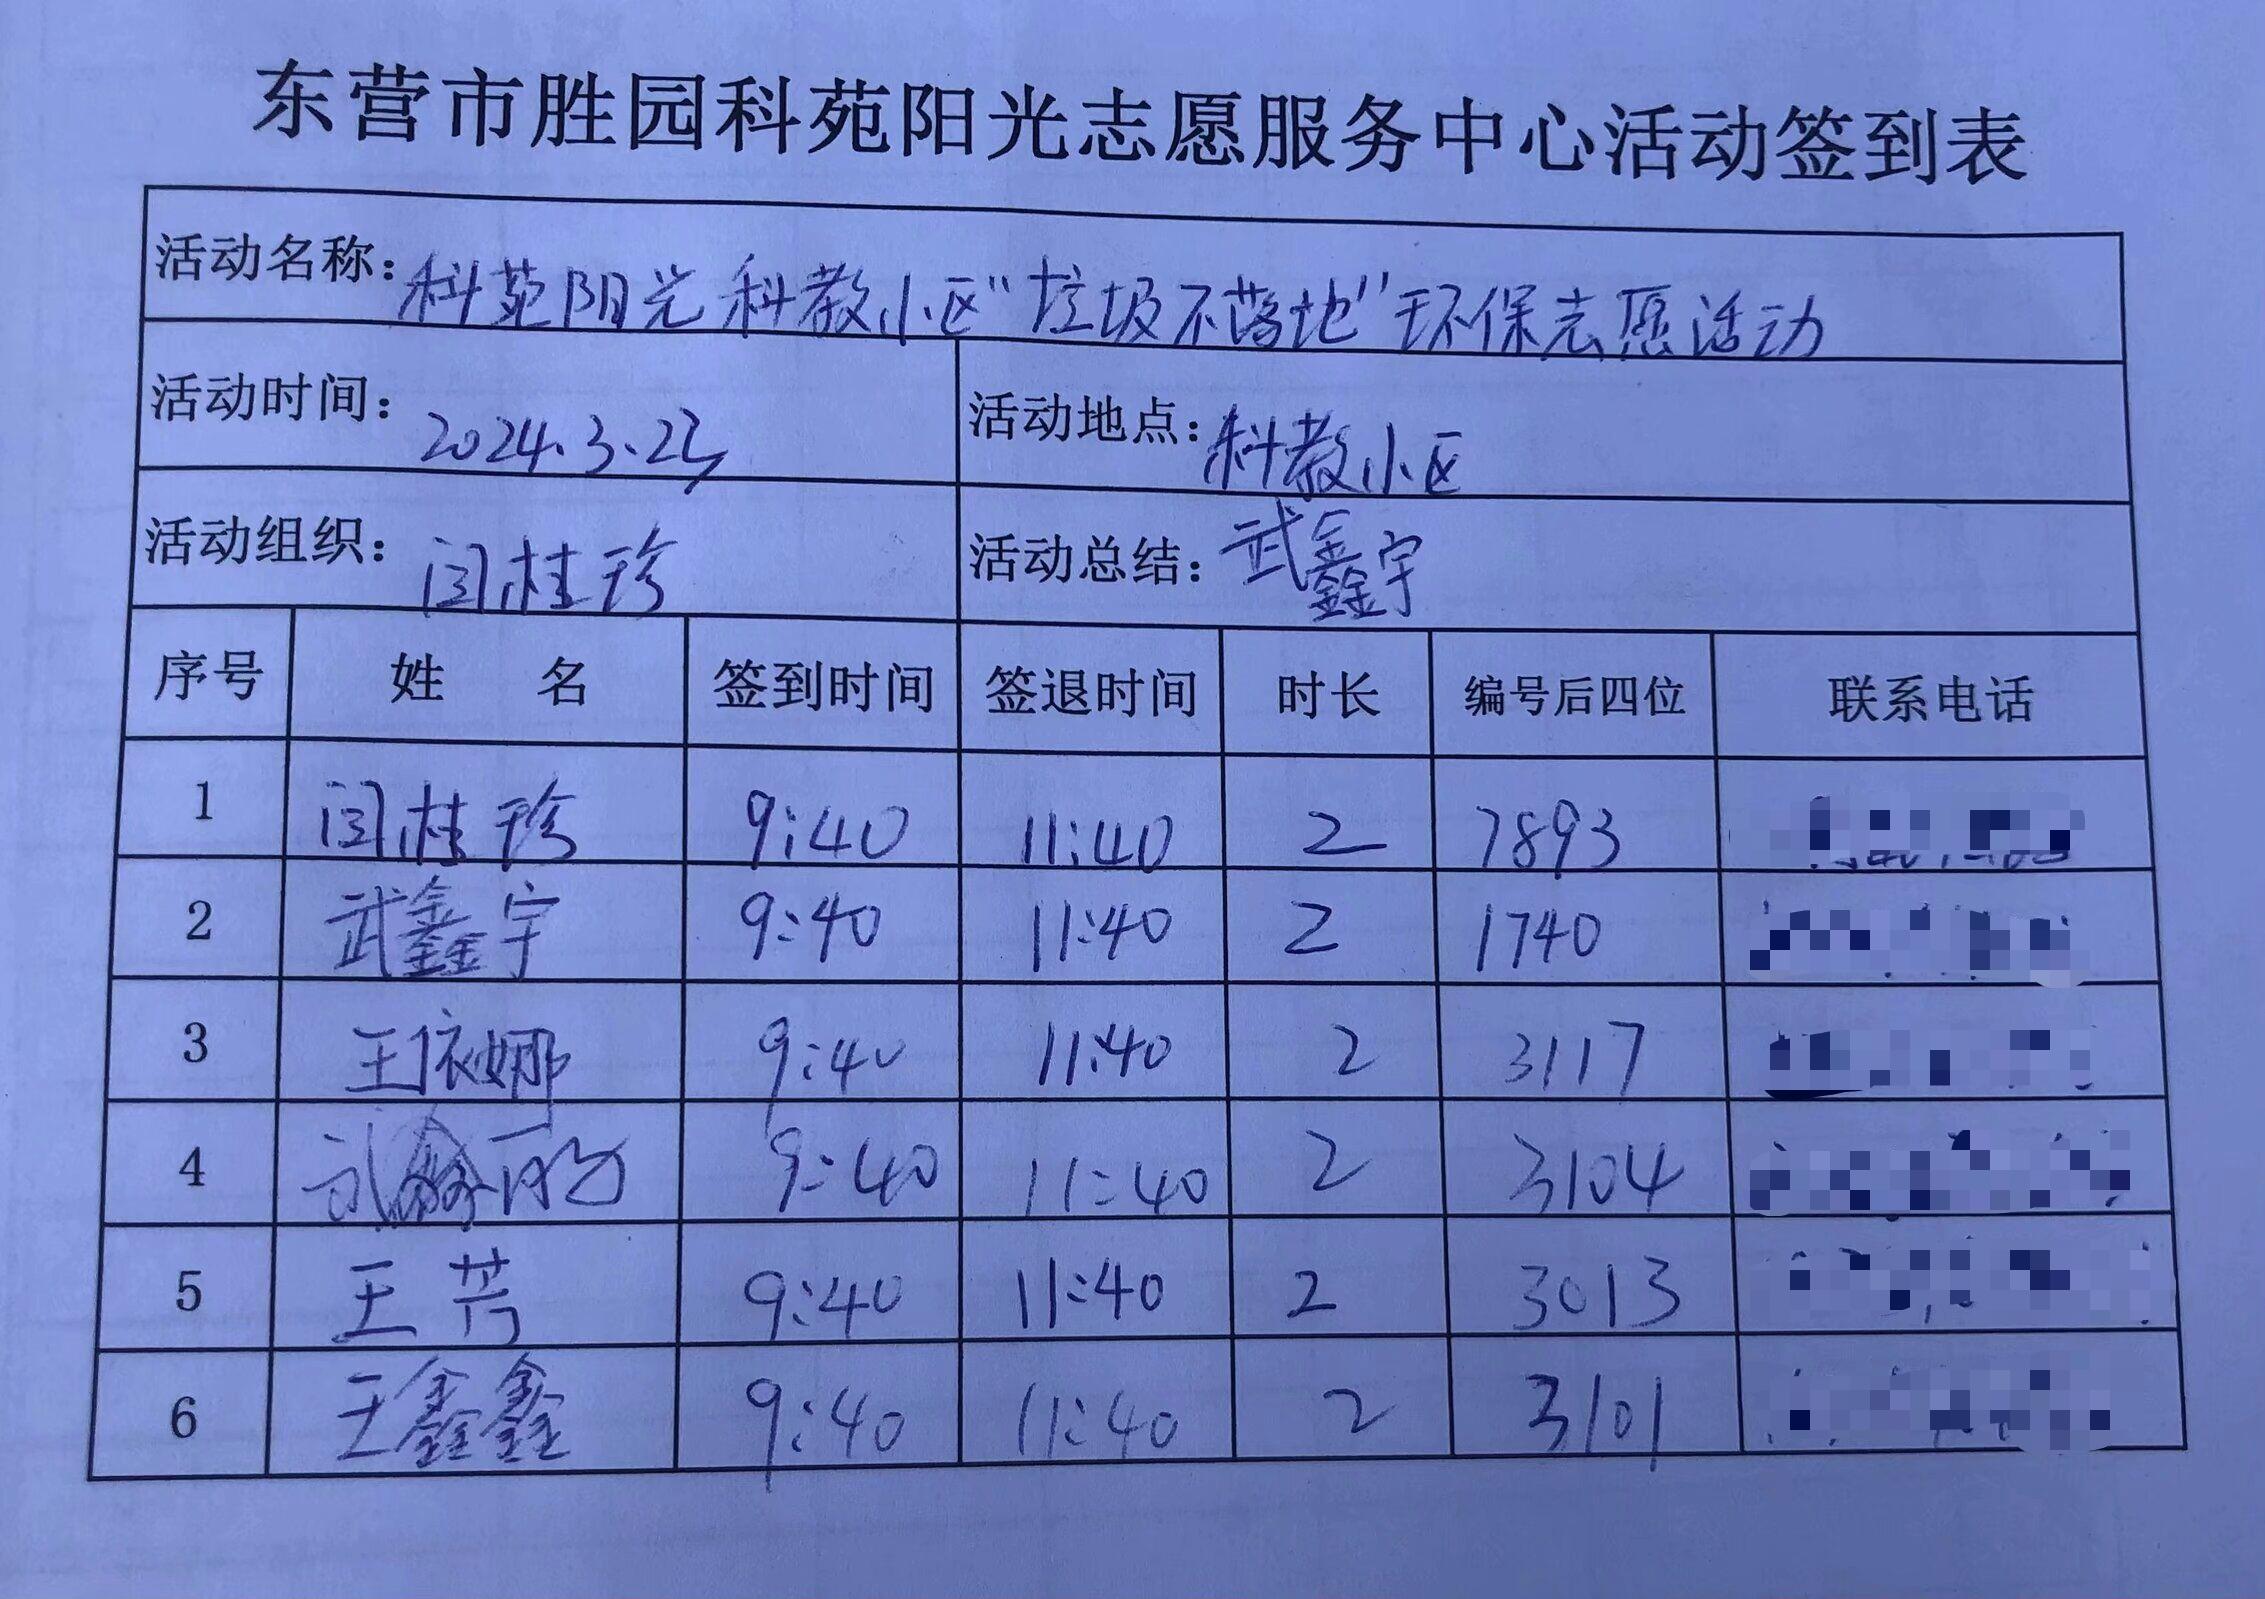 东营市胜园科苑阳光志愿服务中心活动签到表
活动名称：科苑阳光科教小区“垃圾不落地”环保志愿活动
活动时间：2024.3.23 活动地点：科教小区
活动组织：闫桂珍 活动总结：武鑫宇
序号 姓 名 签到时间 签退时间 时长 编号后四位 联系电话
1 闫桂珍 9:40 11:40 2 7893
2 武鑫宇 9:40 11:40 2 1740
3 王依娜 9:40 11:40 2 3117
4 9:40 11:40 2 3104
5 王芳 9:40 11:40 2 3013
6 王鑫鑫 9:40 11:40 2 3101